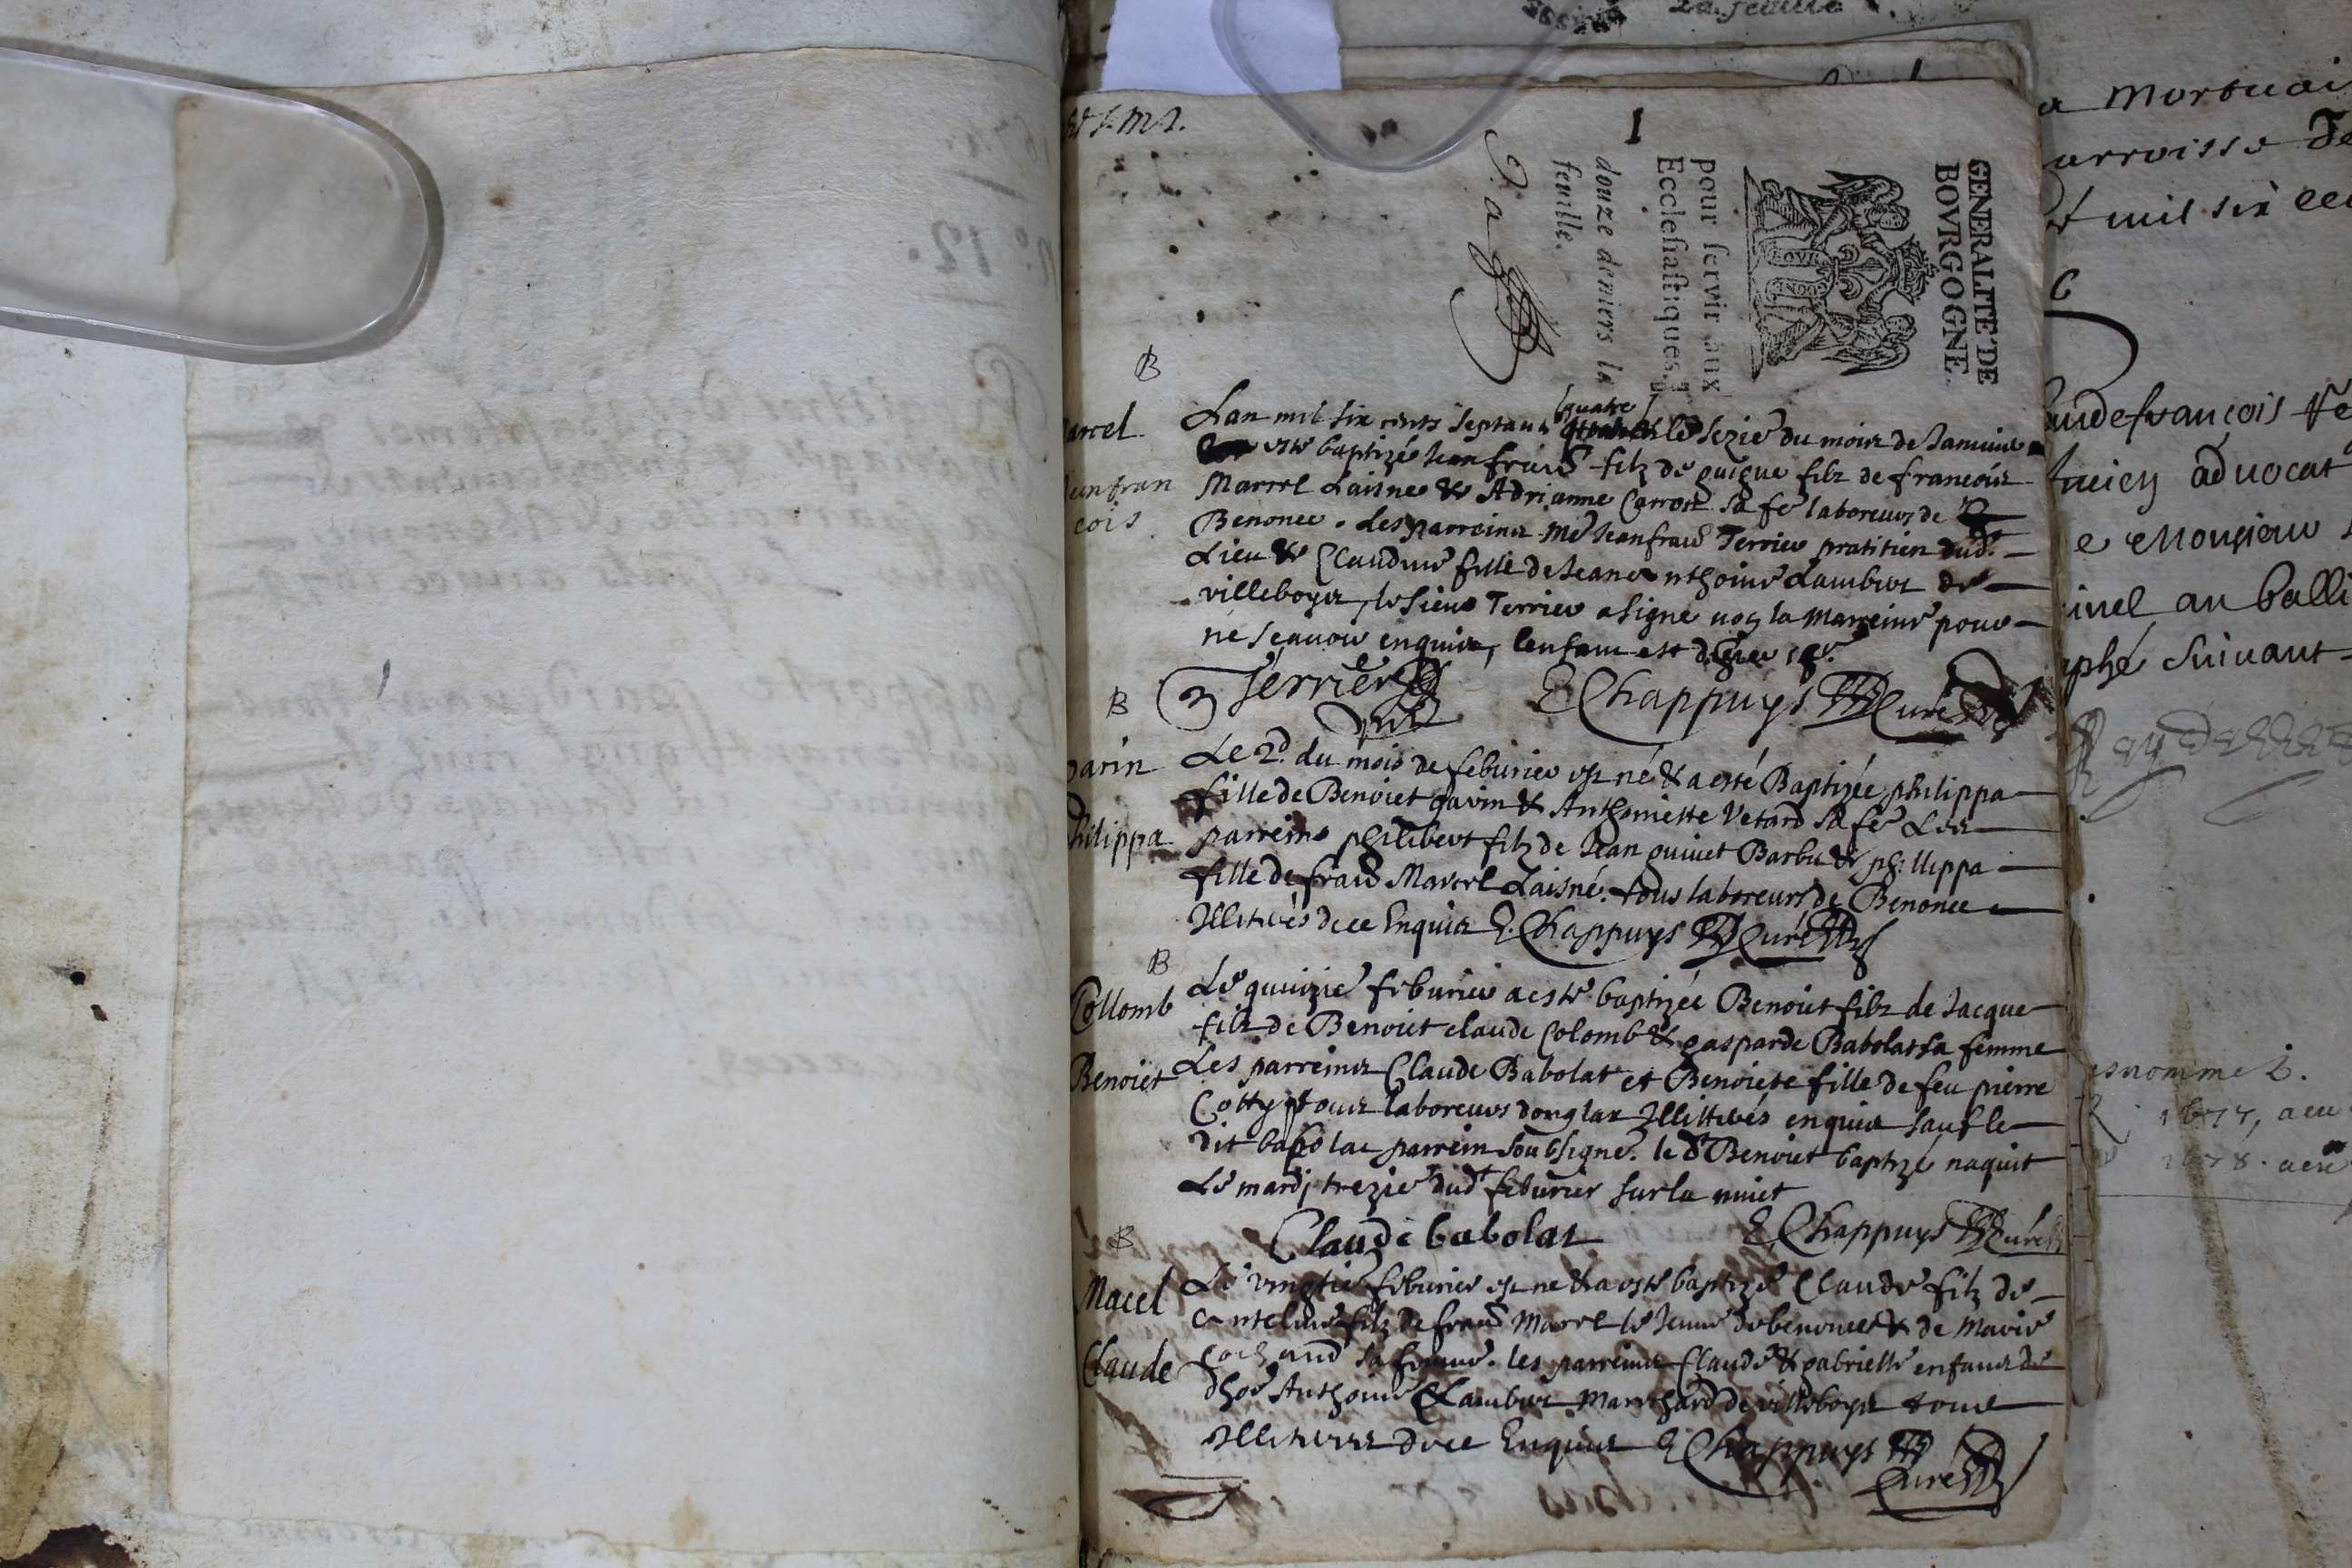 1
GENERALITE DE
BOVRGOGNE.
pour servir aux
Ecclesiastiques.
douze deniers la
feuille.
B
arcel
ean fran
cois
Lan mil six cents septante quatre le sezie du moir de Januier
este baptizé Jean frans filz de guigue filz de francois
Marcel Laisne & Adrianne Carron sa fe laboreurs de
Benonce. Les parreins me Jeanfrans Terrier pratitien dud.
Lieu & Claudine fille de Jean Anthoine Lambert de
villeboys, le sieur Terrier a signé non la Marreine pour
ne scauoir enquis, lenfant est
Terrier
E Chappuys Curé
B
arin
hilippa
Le 2d. du mois de feburier est né & a esté Baptizée philippa
fille de Benoiet gavin & Anthoniette Vetard sa fe Les
parreins philibert filz de Jean guinet Barbu & phillippa
fille de frans Marcel Laisné. tous laboreurs de Benonce
Illiterés de ce Enquis E. Chappuys Curé
B
Collomb
Benoiet
Le quinzie feburier a esté baptizée Benoiet filz de Jacque
filz de Benoiet claude Colomb & gasparde Babolat sa femme
Les parreins Claude Babolat et Benoiete fille de feu pierre
Cotty tous laboreurs donglas Illitterés enquis sauf le
dit babolat parrein soubsigné. le d Benoiet baptizé naquit
Le mardj trezie dudt feburier sur la nuiet
Claude babolat
E Chappuys Curé
B
Macel
Claude
Le vingtie feburier est ne & a esté baptizé Claude filz de
Antelme filz de frans Marcel le Jeune de benonce & de Marie
sa femme. les parreins Claude & gabrielle enfans de
Anthoine Lambert Marchand de villeboys tous
Illiterés de ce Enquis E Chappuys
Curé
a Mortuai
arroisse de
mil six cen
audefrançois
aduocat
e Monsieur
inel au balli
aphé suiuant